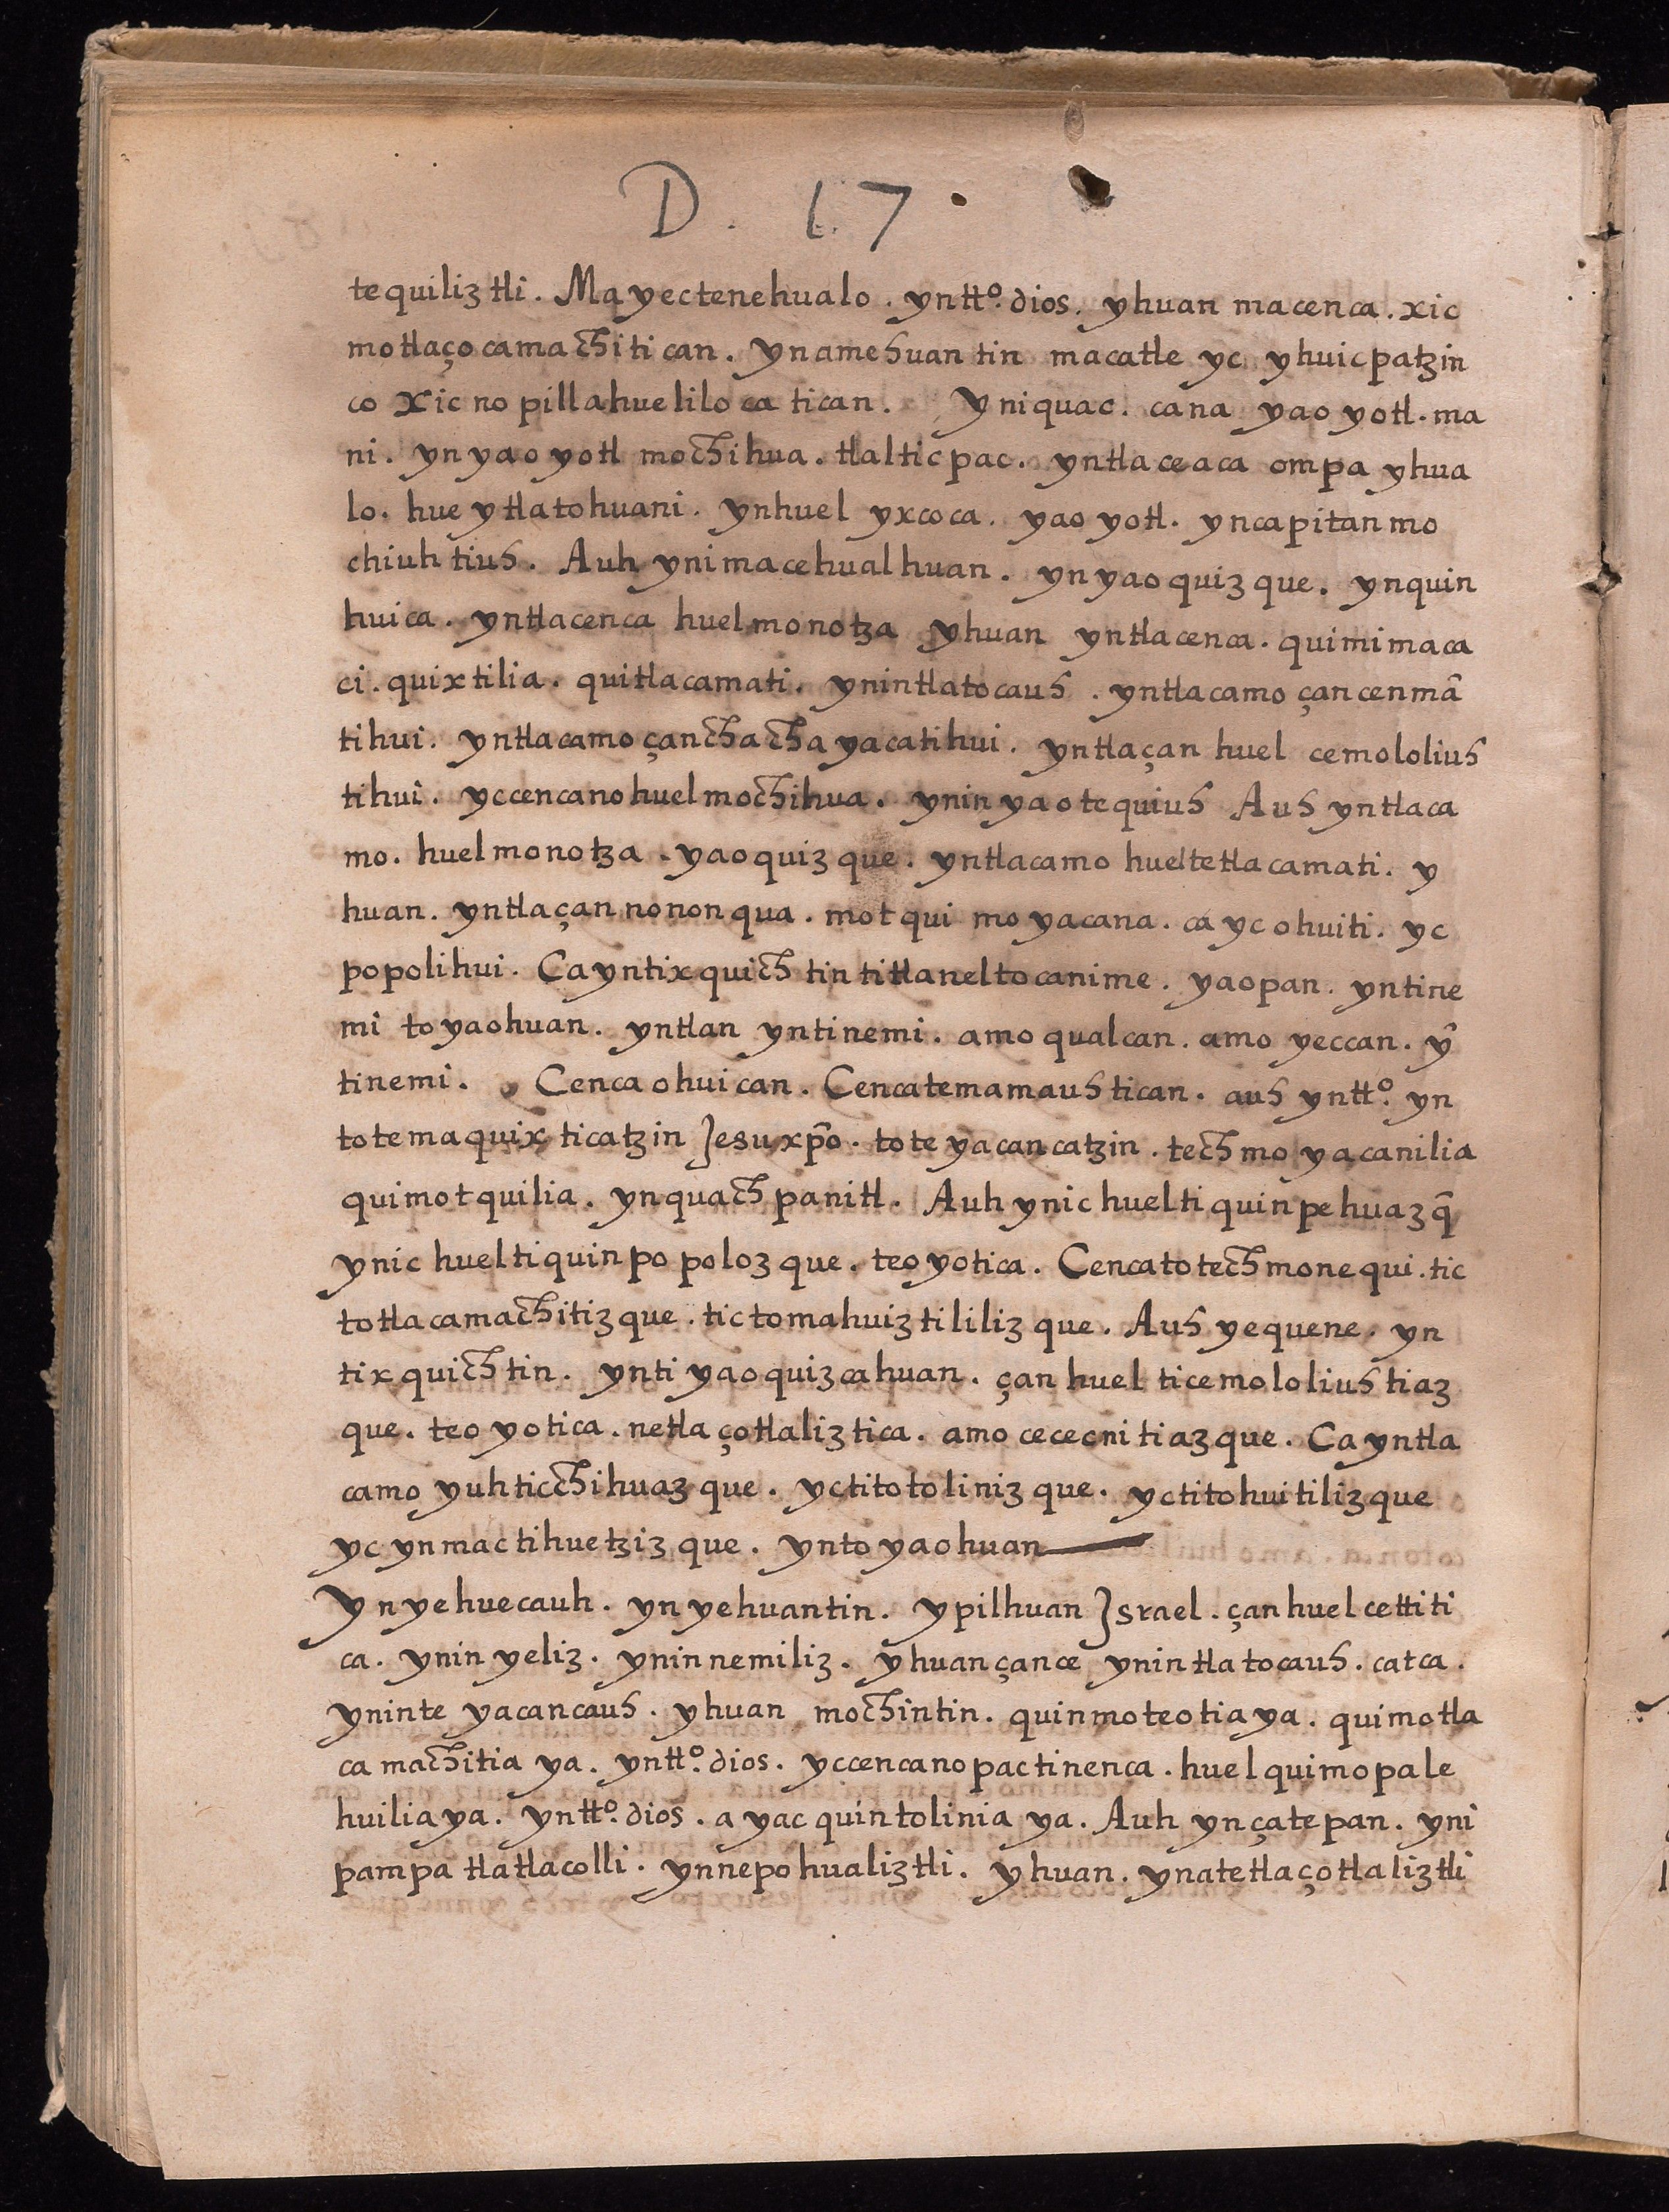 D. 17.
tequiliztli. Ma yectenehualo. yntt̄o. dios. yhuan macenca. xic
motlaçocamachitican. ynamehuantin macatle yc yhuicpatzin
co xicnopillahuelilocatican. Yniquac. cana yaoyotl. ma
ni. yn yaoyotl mochihua. tlalticpac. yntla ceaca ompa yhua
lo. huey tlatohuani. ynhuel yxcoca. yaoyotl. yncapitan mo
chiuhtiuh. Auh ynimacehualhuan. yn yaoquizque. ynquin
huica. yntlacenca huelmonotza yhuan yntlacenca. quimimaca
ci. quixtilia. quitlacamati. ynintlatocauh. yntlacamo çancenmā
tihui. yntlacamo çanchachayacatihui. yntlaçan huel cemololiuh
tihui. yccencanohuelmochihua. ynin yaotequiuh Auh yntlaca
mo. huelmonotza. yaoquizque. yntlacamo hueltetlacamati. y
huan. yntlaçan nononqua. motqui moyacana. ca yc ohuiti. yc
popolihui. Ca yntixquichtin titlaneltocanime. yaopan. yntine
mi toyaohuan. yntlan yntinemi. amo qualcan. amo yeccan. ȳ
tinemi. Cenca ohuican. Cencatemamauhtican. auh yntt̄o. yn
totemaquixticatzin Jesu xp̄o. toteyacancatzin. techmoyacanilia
quimotquilia. ynquachpanitl. Auh ynic huelti quinpehuazq̄
ynic hueltiquinpopolozque. teoyotica. Cencatotechmonequi. tic
totlacamachitizque. tictomahuiztililizque. Auh yequene. yn
tixquichtin. ynti yaoquizcahuan. çan huel ticemololiuhtiaz
que. teoyotica. netlaçotlaliztica. amo cececni tiazque. Ca yntla
camo yuhticchihuazque. yctitotolinizque. yctitohuitilizque
yc ynmactihuetzizque. ynto yaohuan
Yn yehuecauh. yn yehuantin. ypilhuan Jsrael. çanhuel cettiti
ca. ynin yeliz. yninnemiliz. yhuan çance ynintlatocauh. catca.
yninteyacancauh. yhuan mochintin. quinmoteotiaya. quimotla
camachitiaya. yntt̄o. dios. yccencanopactinenca. huelquimopale
huiliaya. yntt̄o. dios. ayac quintoliniaya. Auh ynçatepan. yni
pampa tlatlacolli. ynnepohualiztli. yhuan. ynatetlaçotlaliztli